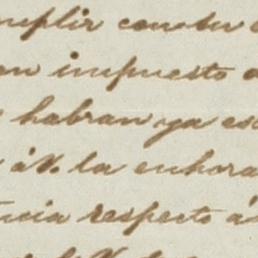 mplir con su
un impuesto
habran ya es
á V. la enhora
ncia respecto á